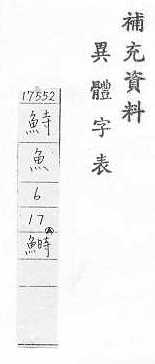 補充資料
異體字表
17552
魚
6
17
鰣